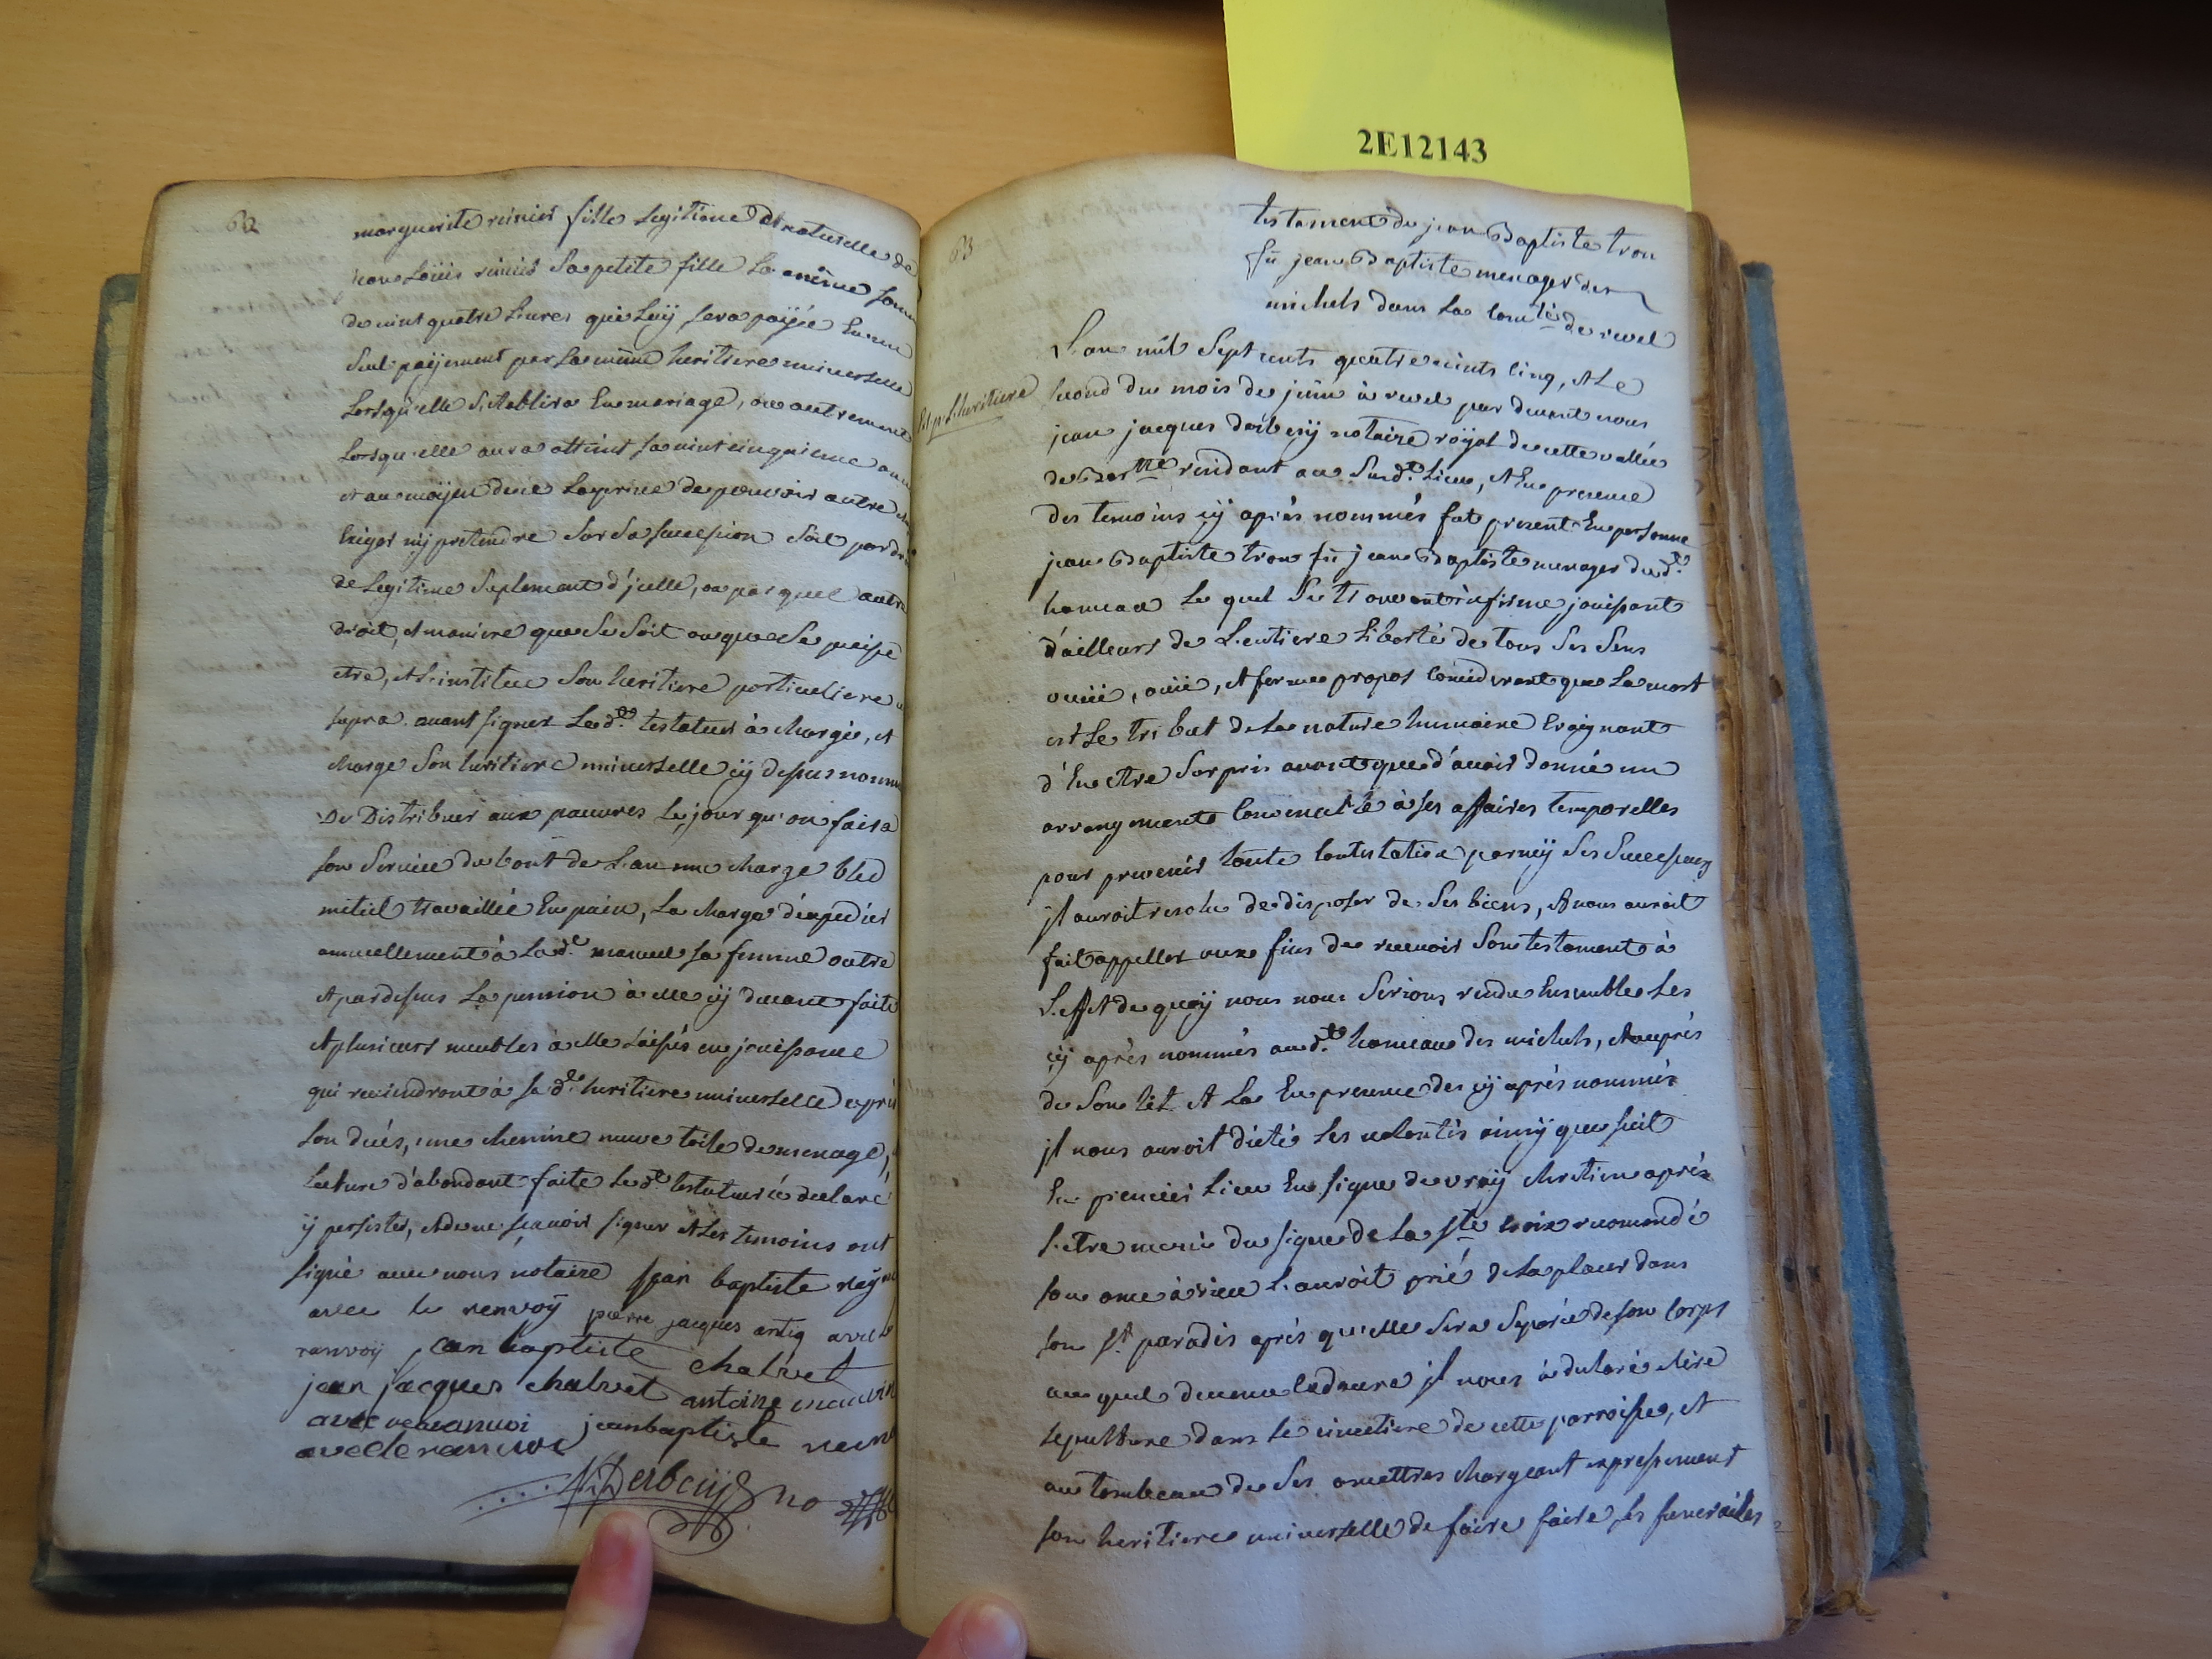 2E12143
62
marguerite reinier fille legitime et naturelle de
jean Loüis reinier Sa petite fille La même Somme
de vint quatre Livres qui Luÿ Sera païée En un
Seul paÿement par La même heritiere universelle
Lorsqu'elle S'etablira En mariage, ou autrement
Lorsqu'elle aura atteint Sa vint cinquieme année
et au moÿen de ce La prive de pouvoir autre chose
Exiger nÿ pretendre Sur Sa Succession Soit par droit
de Legitime Suplement d'jcelle, ou par quel autre
droit, et maniere que Ce Soit ou que Se puisse
etre, et L'institue Son heritiere particuliere ut
supra. avant Signer Led.t testateur à chargé, et
charge Son heritiere universelle cÿ dessus nommée
De Distribuer aux pauvres Le jour qu'on faira
Son Service du bout de L'an une charge bled
mitiel travaillée En pain, La charge d'expedier
annuellement à Lad.e manuel Sa femme outre
et par dessus La pension à elle cÿ devant faite
et plusieurs meubles à elle Laissés en jouissance
qui reviendront à Sa d.te heritiere universelle après
Son decés, une chemise neuve toile de menage,
Lecture d'abondant faite Led.t testateur à declaré
ÿ persister, et de ne sçavoir signer et Les temoins ont
signé avec nous notaire jean baptiste reÿne
avec le renvoÿ pierre jacques antiq avec le
ranvoÿ jean baptiste chalvet
jean jacques chalvet antoine
avec le ranvoi jean baptiste
avec le ranvoi
Derbeÿ no
63
testament de jean Baptiste tron
fü jean Baptiste menager des
michels dans La com.té de revel
Est p.r L'heritiere
L'an mil Sept cents quatre vints cinq, et Le
second du mois de juin à revel par devant nous
jean jacques derbeÿ notaire röyal de cette vallée
de Bar.nne residant au Susd.t Lieu, et En presence
des temoins cÿ aprés nommés fut present En personne
jean Baptiste tron fü jean Baptiste menager dud.t
hameau Le quel Se trouvant infirme jouissant
d'ailleurs de L'entiere Liberté de tous Ses Sens
veüe, oüie, et ferme propos considerant que La mort
est Le tribut de La nature humaine Craignant
d'En etre Surpris avant que d'avoir donné un
arrangement convenable à Ses affaires temporelles
pour prevenir toute contestation parmÿ Ses Successeurs
jl auroit resolu de disposer de Ses biens, et nous auroit
fait appeller aux fins de recevoir Son testament à
L'effet de quoÿ nous nous Serions rendu Ensemble Les
cÿ aprés nommés aud.t hameau des michels, et auprés
de Son lit et La En presence des cÿ aprés nommés
jl nous auroit dicté Ses volontés ainsÿ que Suit
En premier Lieu En signe de vraÿ chretien aprés
s'etre muni du signe de La S.te Croix recomandé
Son ame à Dieu L'auroit prié de La placer dans
Son S.t paradis aprés qu'elle Sera Separée de Son Corps
au quel devenu Cadavre jl nous à declaré elire
sepulture dans Le cimetiere de cette parroisse, et
au tombeau de Ses ancettres chargeant expressement
Son heritiere universelle de faire faire ses funerailes